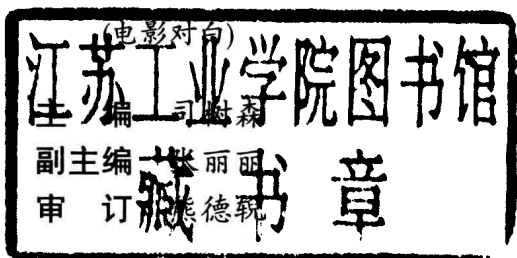 (电影对白)
江苏工业学院图书馆
藏书章
主 编 司树森
副主编 张丽丽
审 订 熊德锐